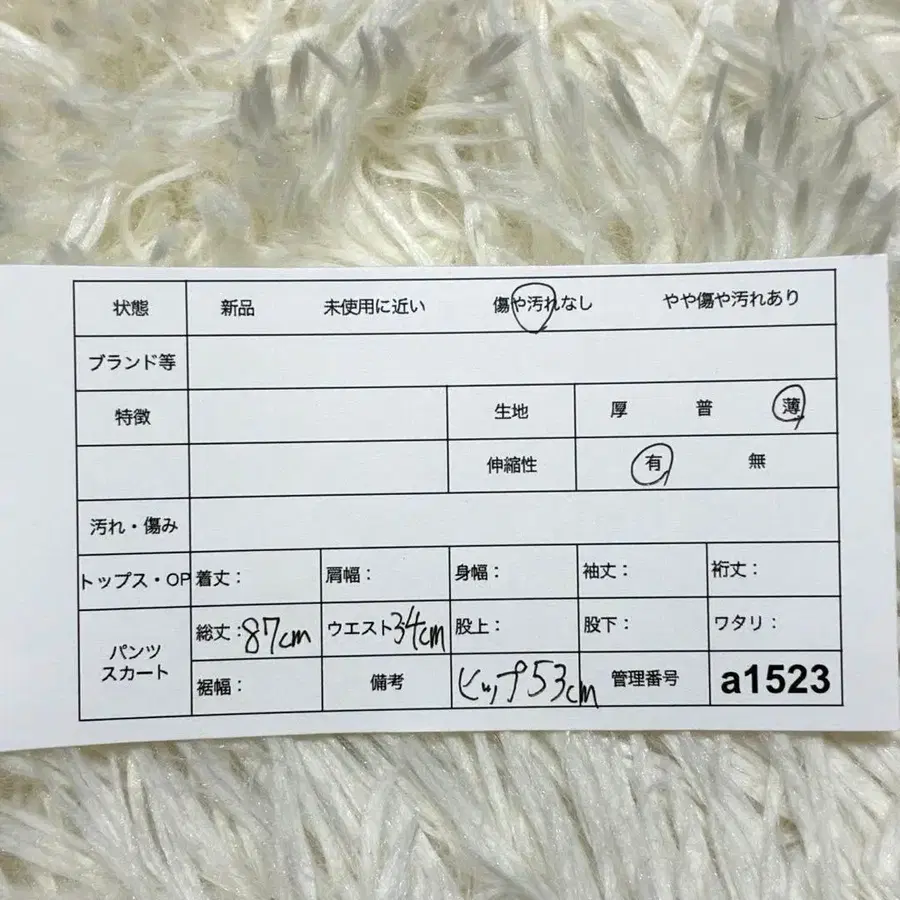 状態 新品 未使用に近い 傷や汚れなし やや傷や汚れあり
ブランド等
特徴 生地 厚 普 薄
伸縮性 有 無
汚れ・傷み
トップス・OP 着丈： 肩幅： 身幅： 袖丈： 裄丈：
パンツ スカート 総丈：87cm ウエスト34cm 股上： 股下： ワタリ：
裾幅： 備考 ヒップ53cm 管理番号 a1523